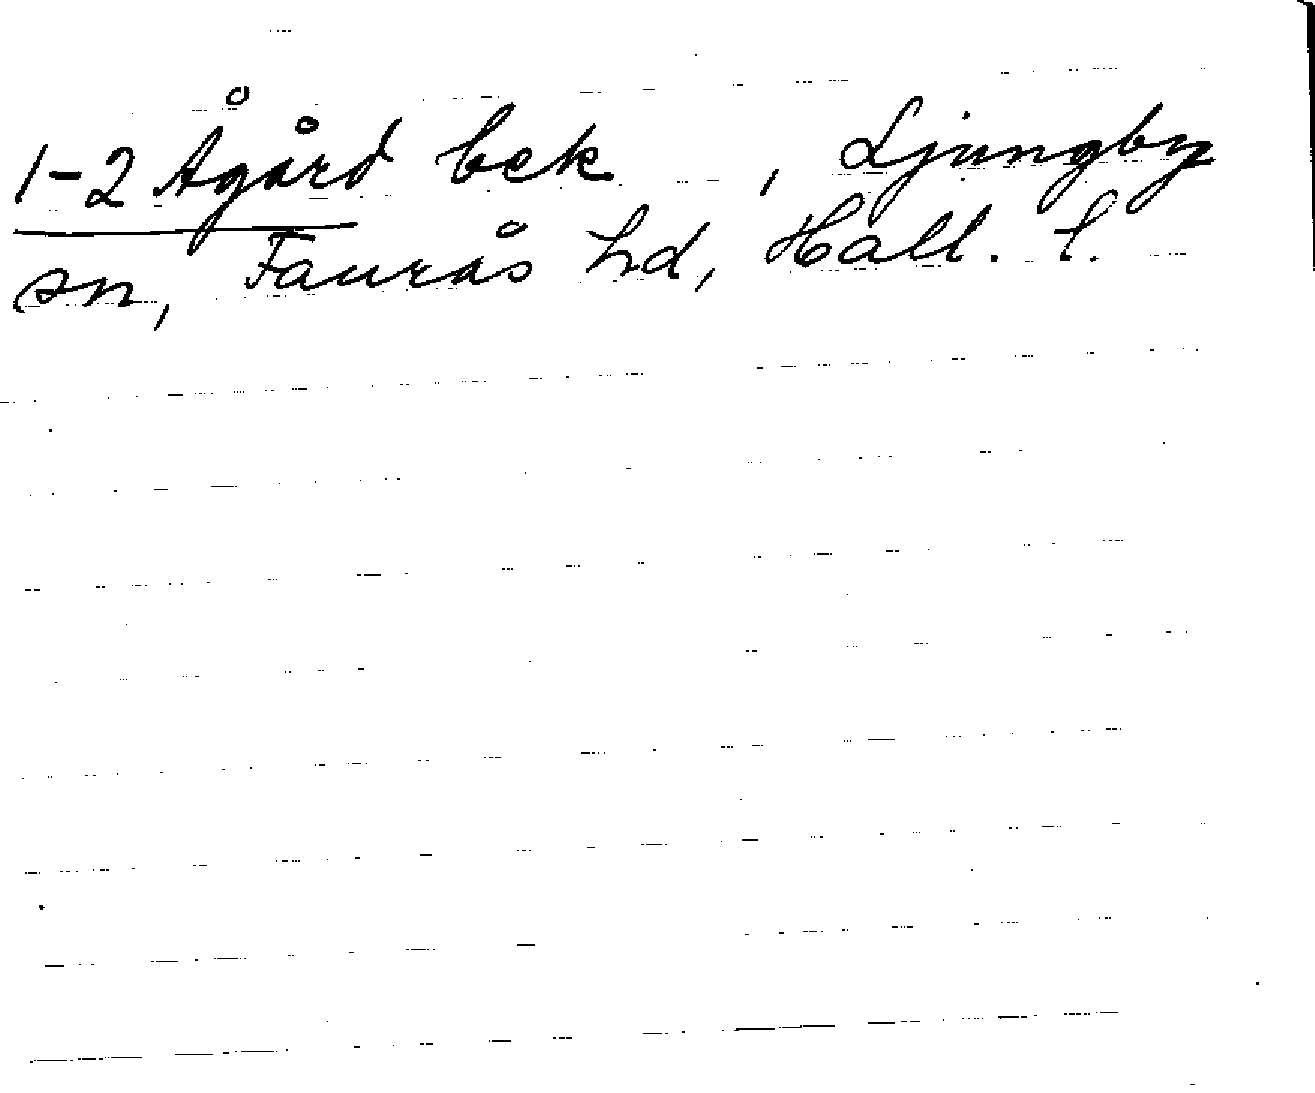 1-2 Ågård bek , Ljungby
sn, Faurås hd, Hall. l.